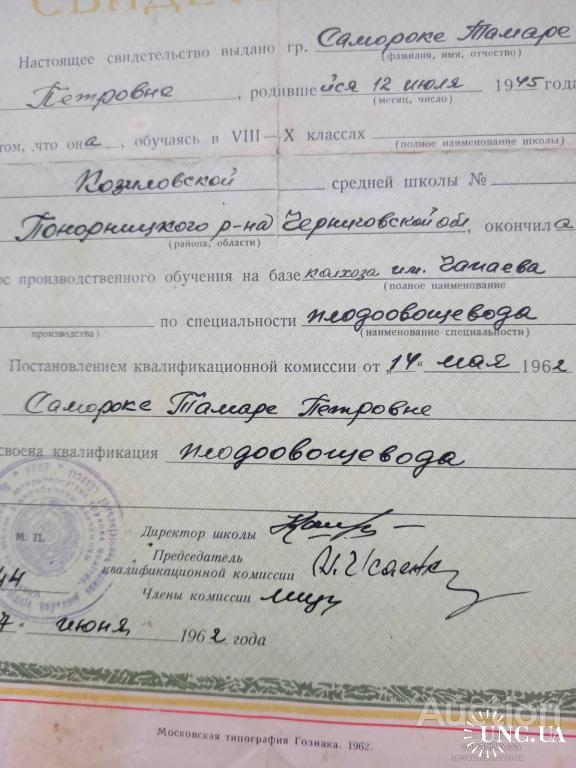 СВИДЕТ
Настоящее свидетельство выдано гр. Самороке Тамаре
(фамилия, имя, отчество)
Петровне, родивше йся 12 июля 1945 года
(месяц, число)
том, что она, обучаясь в VIII—X классах
(полное наименование школы)
Козиловской средней школы №
Понорницкого р-на Черниговской обл, окончила
(района, области)
производственного обучения на базе колхоза им. Чапаева
(полное наименование
производства) по специальности плодоовощевода
(наименование специальности)
Постановлением квалификационной комиссии от „14“ мая 1962
Самороке Тамаре Петровне
своена квалификация плодоовощевода
М. П.
Директор школы
Председатель
квалификационной комиссии
Члены комиссии
июня 1962 года
Московская типография Гознака. 1962.
UNC.UA